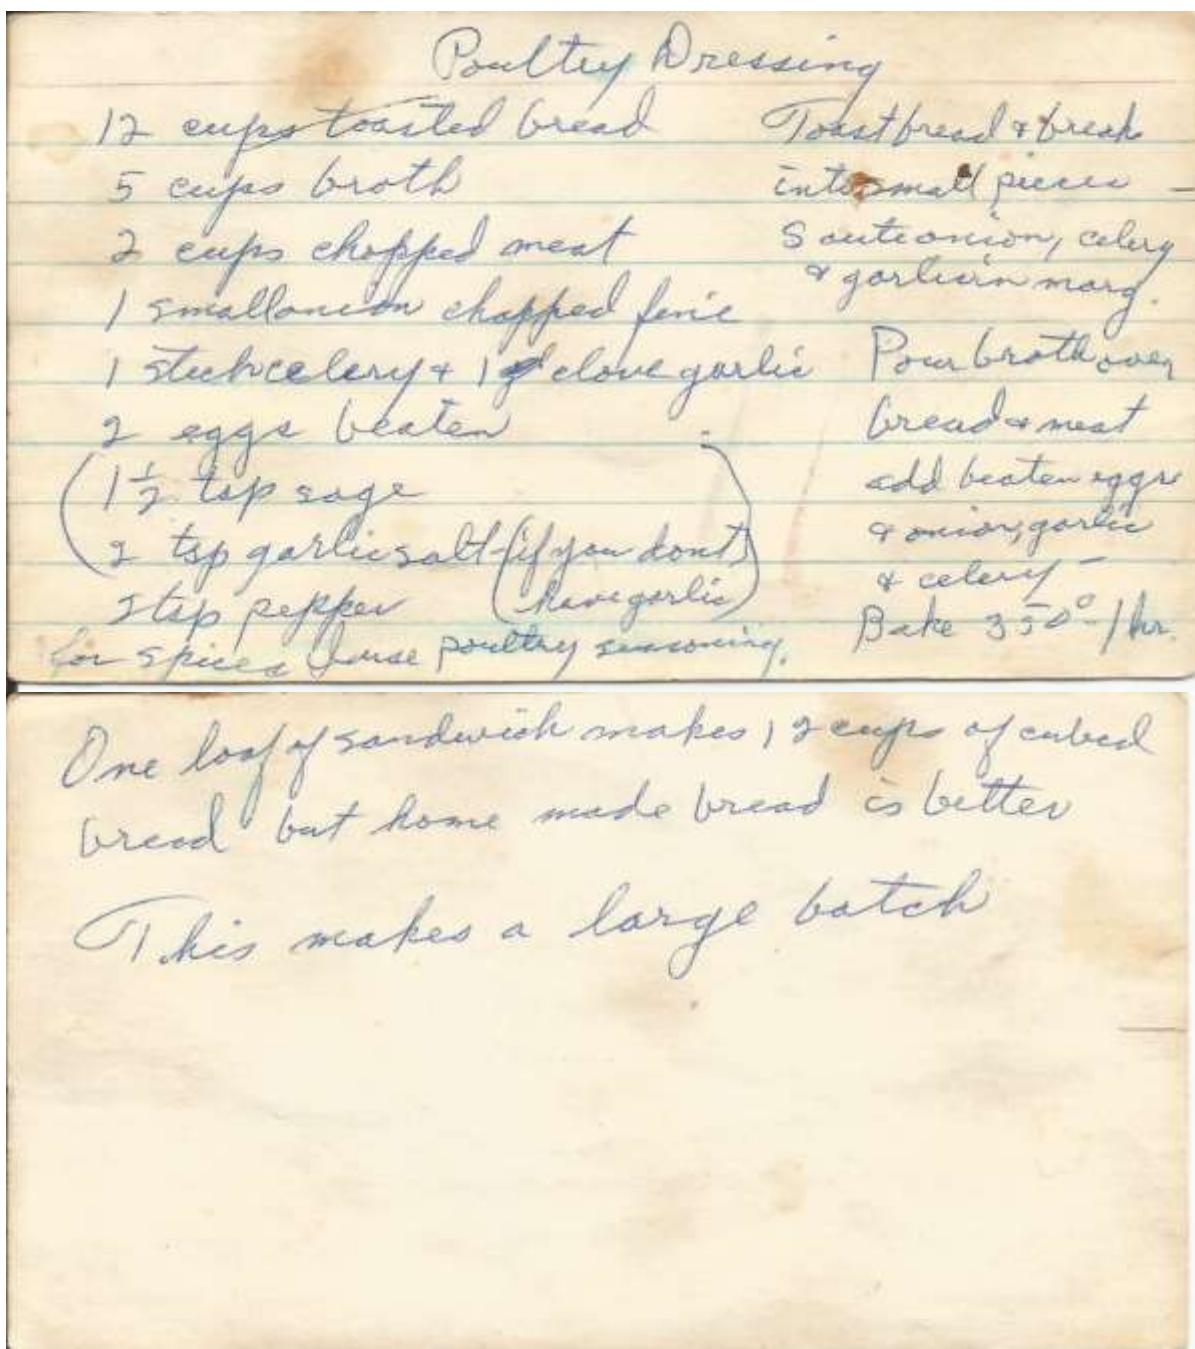 Poultry Dressing
12 cups toasted bread
5 cups broth
2 cups chopped meat
1 small onion chopped fine
1 stick celery & 1 clove garlic
2 eggs beaten
(1 1/2 tsp sage
2 tsp garlic salt (if you dont
have garlic)
2 tsp pepper
for spices I use poultry seasoning.
Toast bread & break
into small pieces -
Saute onion, celery
& garlic in marg.
Pour broth over
bread & meat
add beaten eggs
& onion, garlic
& celery -
Bake 350° - 1 hr.
One loaf of sandwich makes 12 cups of cubed
bread but home made bread is better
This makes a large batch